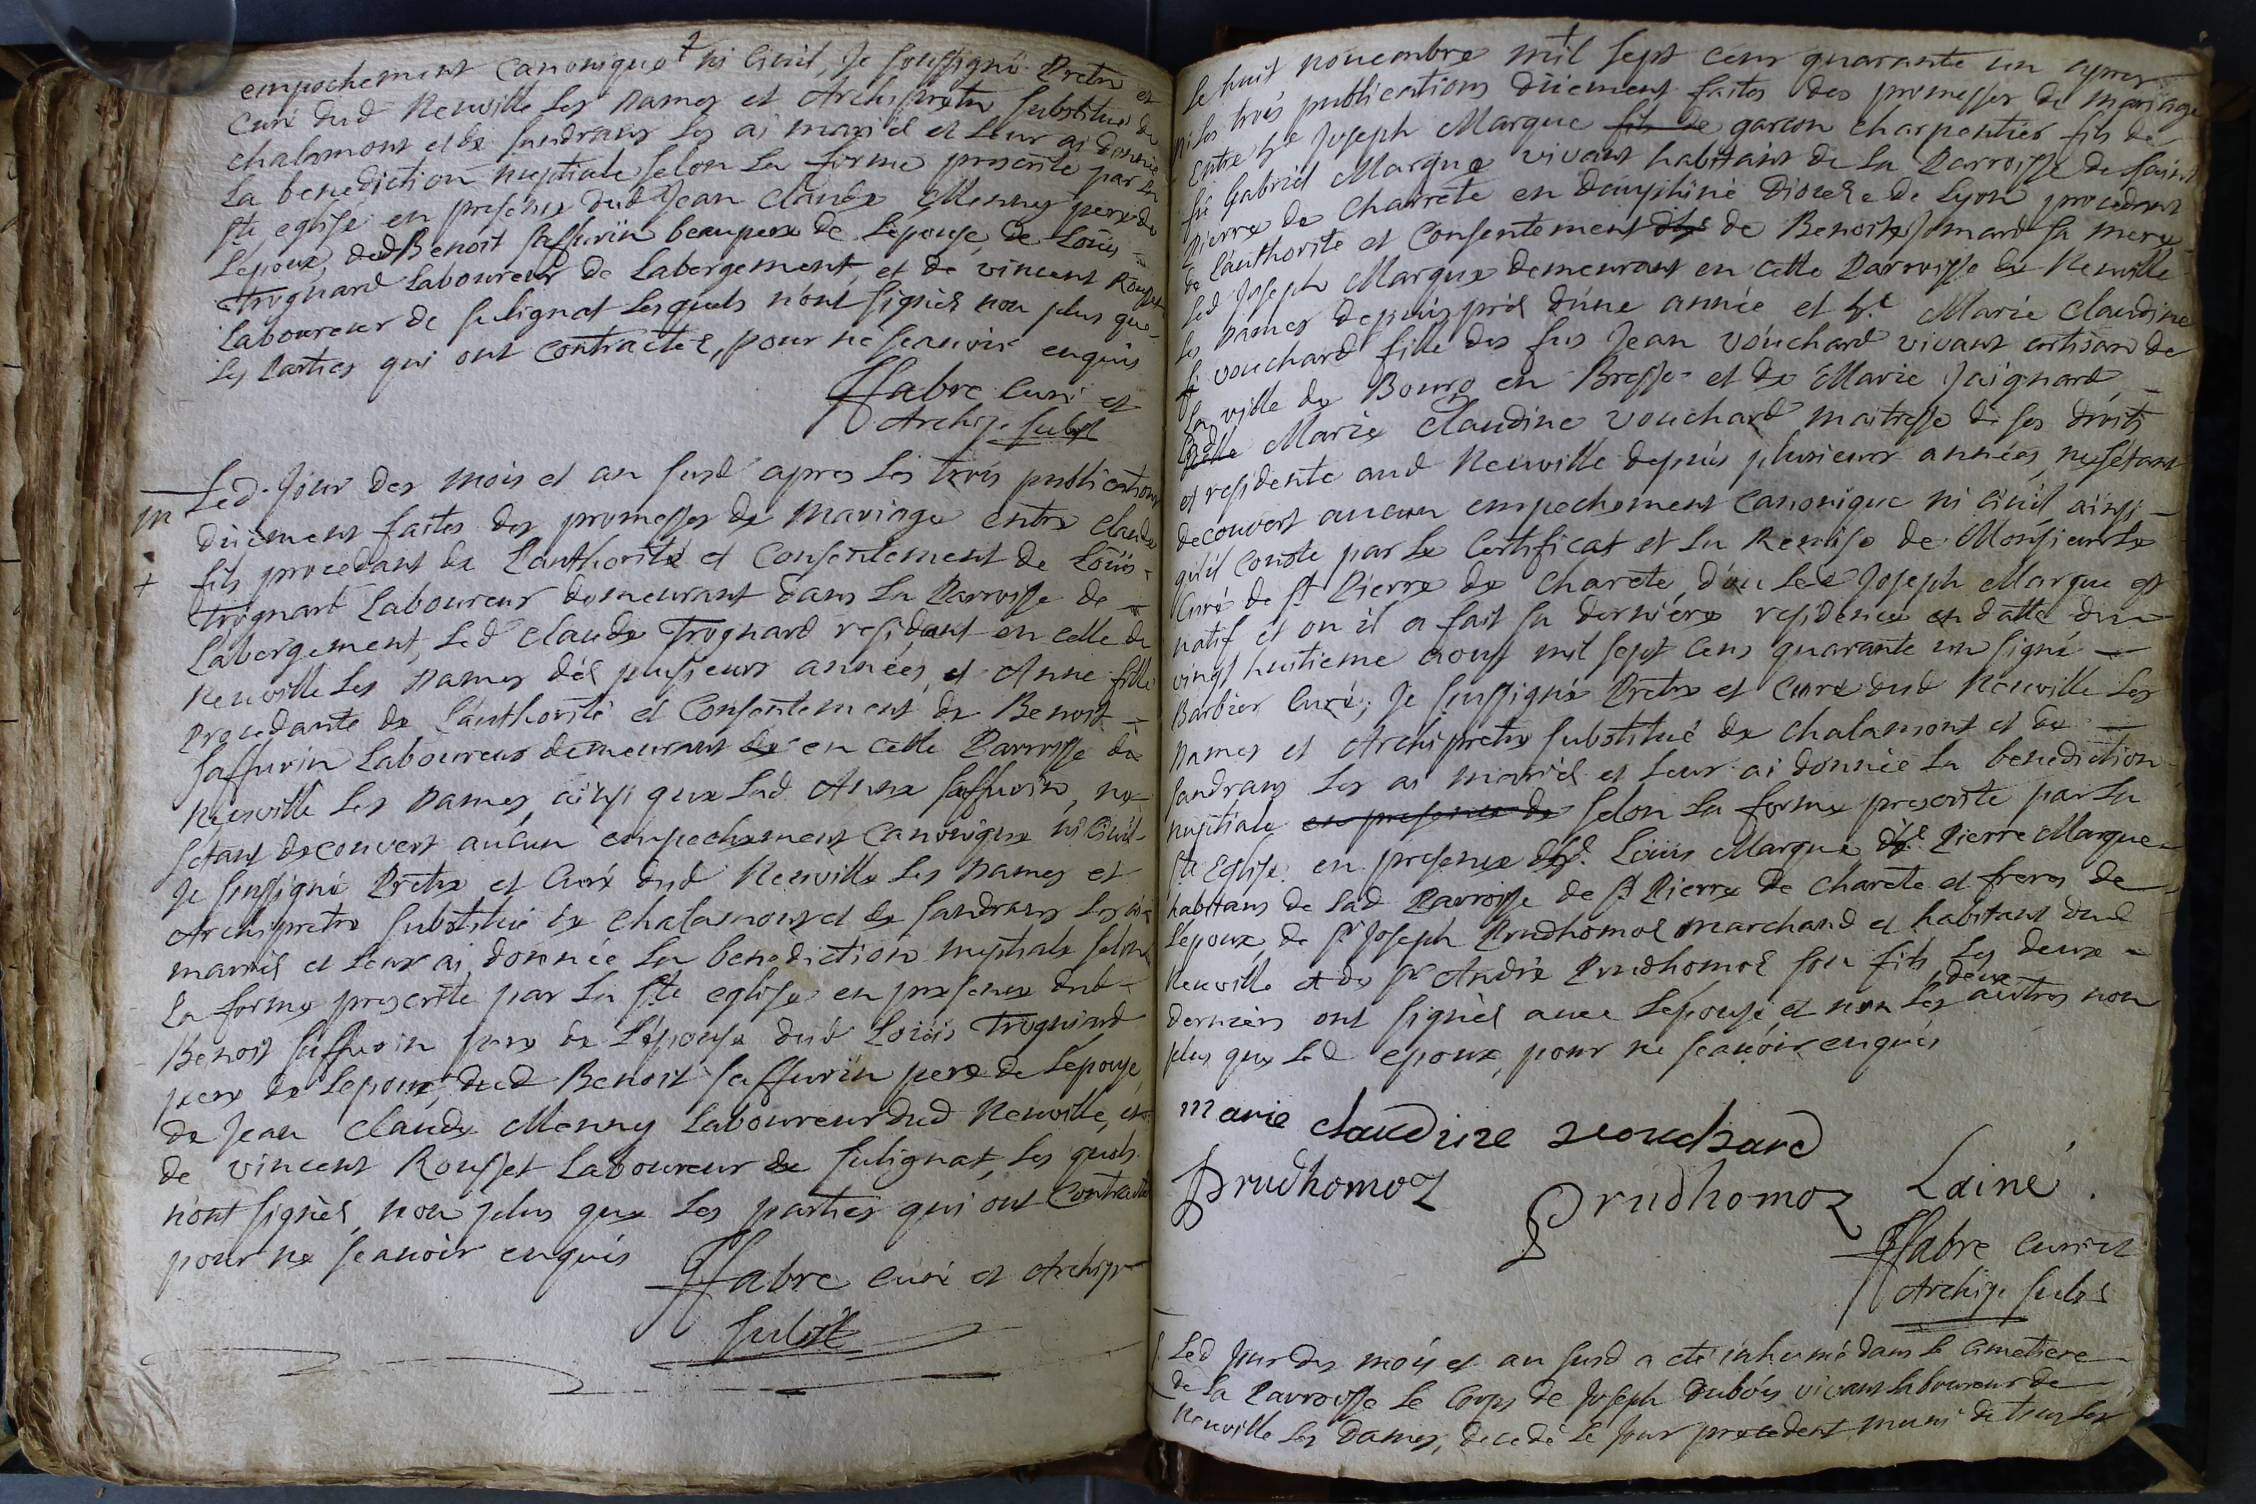 empechement canonique ni civil, Je soussigné Pretre et
Curé dud Neuville Les Dames et Archipretre substitué de
chalamont et de sandrans les ai mariés et leur ai donnée
La benediction nuptiale selon La forme prescrite par La
ste eglise en presence dud Jean Claude Menny pere de
Lepoux, dud Benoit saffurin beaupere de Lepouse, de Loüis
Trognard Laboureur de Labergement, et de vincent Rousset
Laboureur de sulignat Lesquels n'ont signés non plus que
Les Parties qui ont contractés, pour ne scavoir enquis
ffabre Curé et
Archip. subst
m
Led. Jour des mois et an susd apres Les trois publications
düement faites des promesses de mariage entre claude
+ fils procedant de Lauthorité et consentement de Loüis
Trognard Laboureur demeurant dans La Parroisse de
Labergement, Led claude Trognard residant en celle de
Neuville Les Dames dés plusieurs années, et Anne fille
Procedante de L'authorité et consentement de Benoit
saffurin Laboureur demeurant de en cette Parroisse de
Neuville Les Dames, ainsi que Lad Anne saffurin, ne
setant decouvert aucun empechement canonique ni civil
Je soussigné Pretre et Curé dud Neuville Les Dames et
Archipretre substitué de chalamont et de sandrans Les ai
mariés et Leur ai donnée La benediction nuptiale selon
La forme prescrite par La ste eglise en presence dud
Benoit saffurin pere de L'épouse dud Loüis Trognard
pere de Lepoux, dud Benoit saffurin pere de Lépouse,
de Jean Claude Menny Laboureur dud Neuville, et
de vincent Rousset Laboureur de sulignat, Les quels
n'ont signés, non plus que Les parties qui ont contracté
pour ne scavoir enquis
ffabre Curé et Archip
subst
Le huit novembre mil sept cens quarante un apres
m Les trois publications düement faites des promesses de mariage
Entre sr Joseph Marque fils de garcon charpentier fils de
fû Gabriel Marque vivant habitant de La Parroisse de saint
Pierre de Charrete en dauphiné Diocese de Lyon procedant
de Lauthorité et Consentement de Benoite Jomard sa mere
Led Joseph Marque demeurant en cette Parroisse de Neuville
Les Dames depuis prés d'une année et Marie Claudine
vouchard fille des fus Jean vouchard vivant artisan de
La ville de Bourg en Bresse et de Marie Jaignard,
Lad Marie Claudine vouchard maitresse de ses droits
et residente aud Neuville depuis plusieurs années, ne s'étant
decouvert aucun empechement canonique ni civil ainsi
qu'il conste par Le Certificat et La Remise de Monsieur Le
Curé de st Pierre de Charete, d'ou Led Joseph Marque est
natif et ou il a fait sa derniere residence en datte du
vingt huitieme aout mil sept cens quarante un signé
Barbier Curé; Je soussigné Pretre et Curé dud Neuville Les
Dames et Archipretre substitué de Chalamont et de
sandrans Les ai mariés et Leur ai donnée La benediction
nuptiale en presence de selon La forme prescrite par La
ste Eglise en presence de Loüis Marque de Pierre Marque
habitans de Lad Parroisse de st Pierre de Charete et freres de
L'epoux, de sr Joseph Prudhomoz marchand et habitant dud
Neuville et de sr André Prudhomoz son fils Les deux
derniers ont signés avec Lepouse et non Les deux autres non
plus que Led epoux, pour ne scavoir enquis
marie claudine vouchard
Prudhomoz Prudhomoz Lainé.
ffabre Curé et
Archip. subst
Led Jour des mois et an susd a eté inhumé dans le cimetiere
de La Parroisse Le Corps de Joseph Dubois vivant laboureur de
Neuville Les Dames, decedé Le Jour precedent muni de tous Les